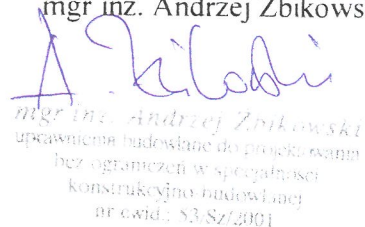 mgr inż. Andrzej Zbikows
mgr inż. Andrzej Zbikowski
uprawnienia budowlane do projektowania
bez ograniczeń w specjalności
konstrukcyjno-budowlanej
nr ewid.: 53/Sz/2001